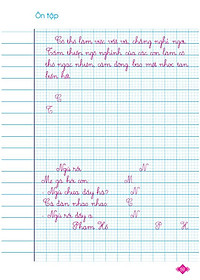 Ôn tập
Cô thỏ làm việc vất vả, chẳng nghỉ ngơi.
Tấm thiệp ngộ nghĩnh của các con làm cô
thỏ ngạc nhiên, cảm động, bao mệt nhọc tan
biến hết.
C
T
Ngủ rồi N
Mẹ gà hỏi con M
- Ngủ chưa đấy hả? N
Cả đàn nhao nhao C
- Ngủ rồi đấy ạ. N
Phạm Hổ P H